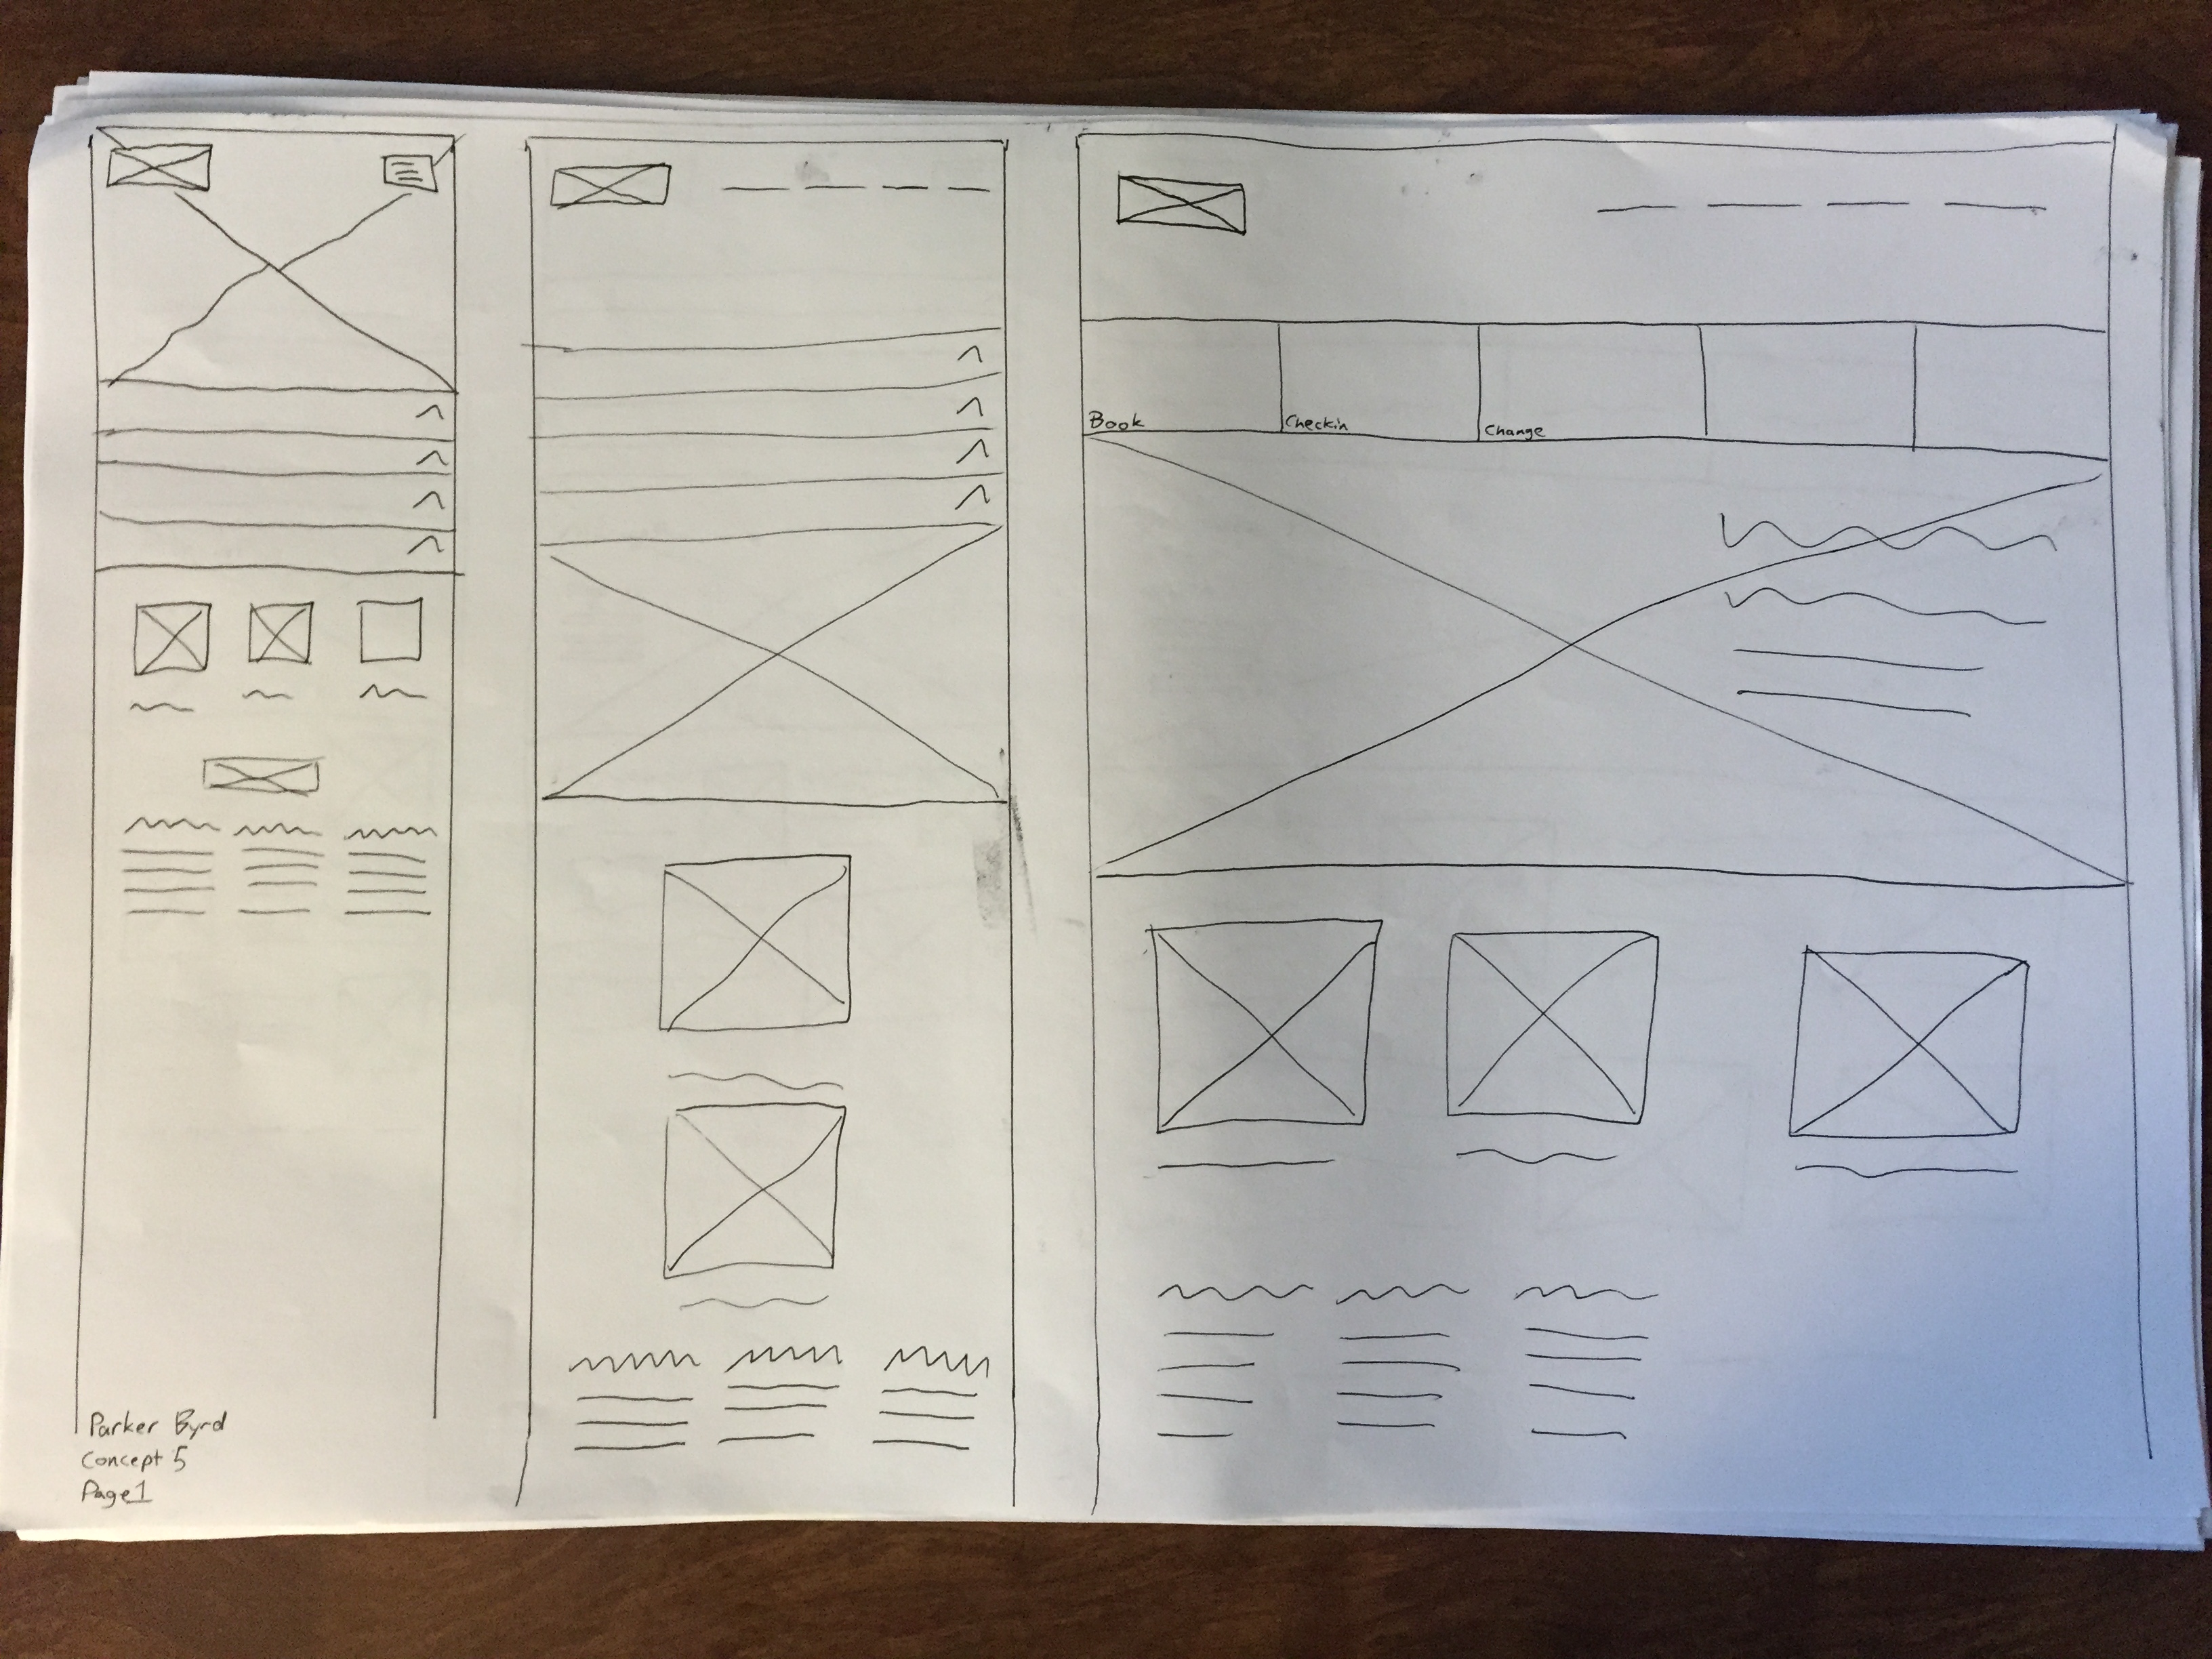 Book
Checkin
Change
Parker Byrd
Concept 5
Page 1